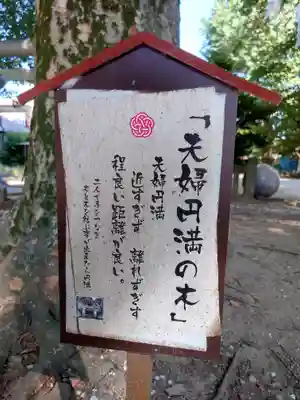 「夫婦円満の木」
夫婦円満
近すぎず 離れすぎず
程良い距離が良い。